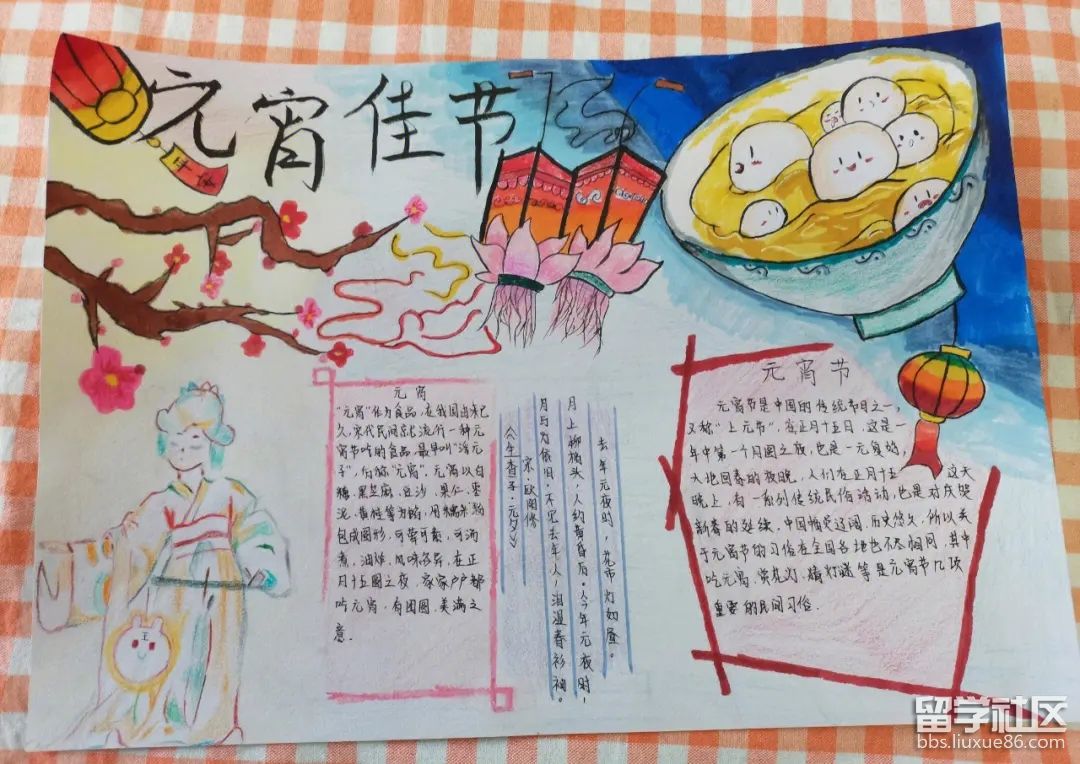 元宵佳节
元宵
"元宵"作为食品,在我国由来已
久,宋代民间就流行一种元
宵节吃的食品,最早叫"浮元
子",后称"元宵",元宵以白
糖、黑芝麻、豆沙、果仁、枣
泥、黄桂等为馅,用糯米粉
包成圆形,可荤可素,可汤
煮、油炸、风味各异,在正
月十五圆之夜,家家户户都
吃元宵,有团圆、美满之
意.
去年元夜时,花市灯如昼。
月上柳梢头,人约黄昏后,今年元夜时,
月与灯依旧,不见去年人,泪湿春衫袖。
宋·欧阳修
《生查子·元夕》
元宵节
元宵节是中国的传统节日之一,
又称"上元节",在正月十五日,这是一
年中第一个月圆之夜,也是一元复始,
大地回春的夜晚,人们在正月十五这天
晚上,有一系列传统民俗活动,也是对庆贺
新春的延续,中国幅员辽阔,历史悠久,所以关
于元宵节的习俗在全国各地也不尽相同,其中
吃元宵、赏花灯、猜灯谜等是元宵节几项
重要的民间习俗.
王
留学社区
bbs.liuxue86.com